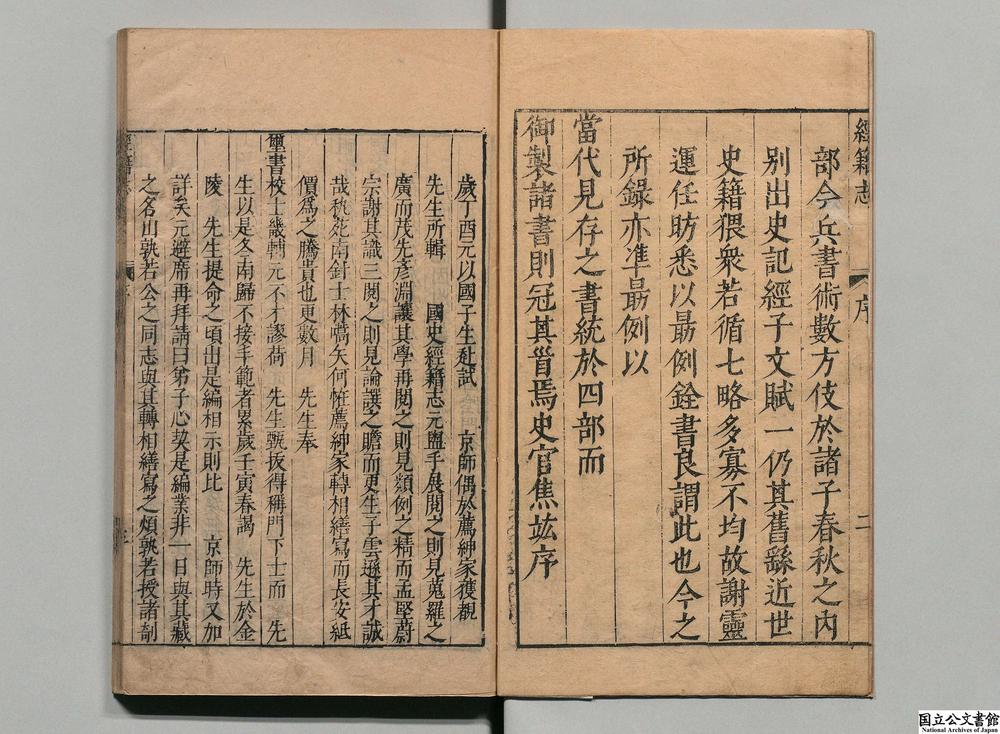 經籍志
序
二
部今兵書術數方伎於諸子春秋之內
別出史記經子文賦一仍其舊繇近世
史籍猥衆若循七略多寡不均故謝靈
運任昉悉以勗例銓書良謂此也今之
所錄亦準勗例以
當代見存之書統於四部而
御製諸書則冠其首焉史官焦竑序
歲丁酉元以國子生赴試 京師偶於薦紳家獲覩
先生所輯 國史經籍志元盥手展閱之則見蒐羅之
廣而茂先彥淵讓其學再閱之則見類例之精而孟堅蔚
宗謝其識三閱之則見論譔之贍而更生子雲遜其才誠
哉秇苑南針士林嚆矢何恠薦紳家轉相繕寫而長安紙
價爲之騰貴也更數月 先生奉
璽書校士畿輔元不才謬荷 先生甄拔得稱門下士而 先
生以是冬南歸不接手範者累歲壬寅春謁 先生於金
陵 先生提命之頃出是編相示則比 京師時又加
詳矣元避席再拜請曰弟子心契是編業非一日與其藏
之名山孰若公之同志與其轉相繕寫之煩孰若授諸剞
国立公文書館
National Archives of Japan